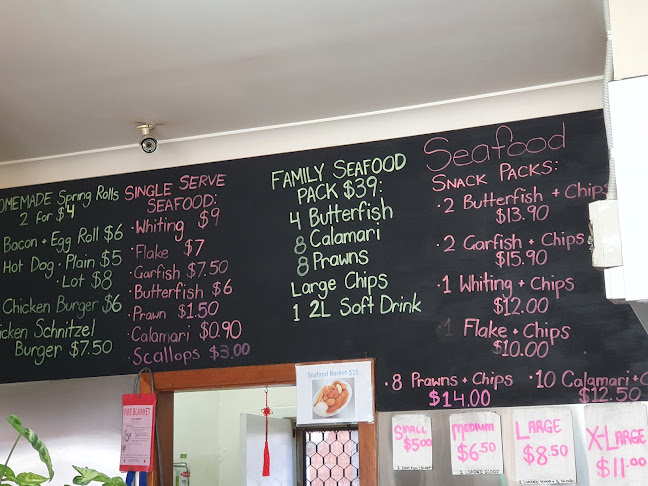 OMEMADE Spring Rolls
2 for $4
Bacon + Egg Roll $6
Hot Dog · Plain $5
· Lot $8
Chicken Burger $6
icken Schnitzel
Burger $7.50
SINGLE SERVE
SEAFOOD:
· Whiting $9
· Flake $7
· Garfish $7.50
· Butterfish $6
· Prawn $1.50
· Calamari $0.90
· Scallops $3.00
FAMILY SEAFOOD
PACK $39:
4 Butterfish
8 Calamari
8 Prawns
Large Chips
1 2L Soft Drink
Seafood
SNACK PACKS:
· 2 Butterfish + Chips
$13.90
· 2 Garfish + Chips
$15.90
· 1 Whiting + Chips
$12.00
1 Flake + Chips
$10.00
· 8 Prawns + Chips
$14.00
· 10 Calamari + C
$12.50
Seafood Basket $15
FIRE BLANKET
SMALL
$5.00
MEDIUM
$6.50
LARGE
$8.50
X-LARGE
$11.00